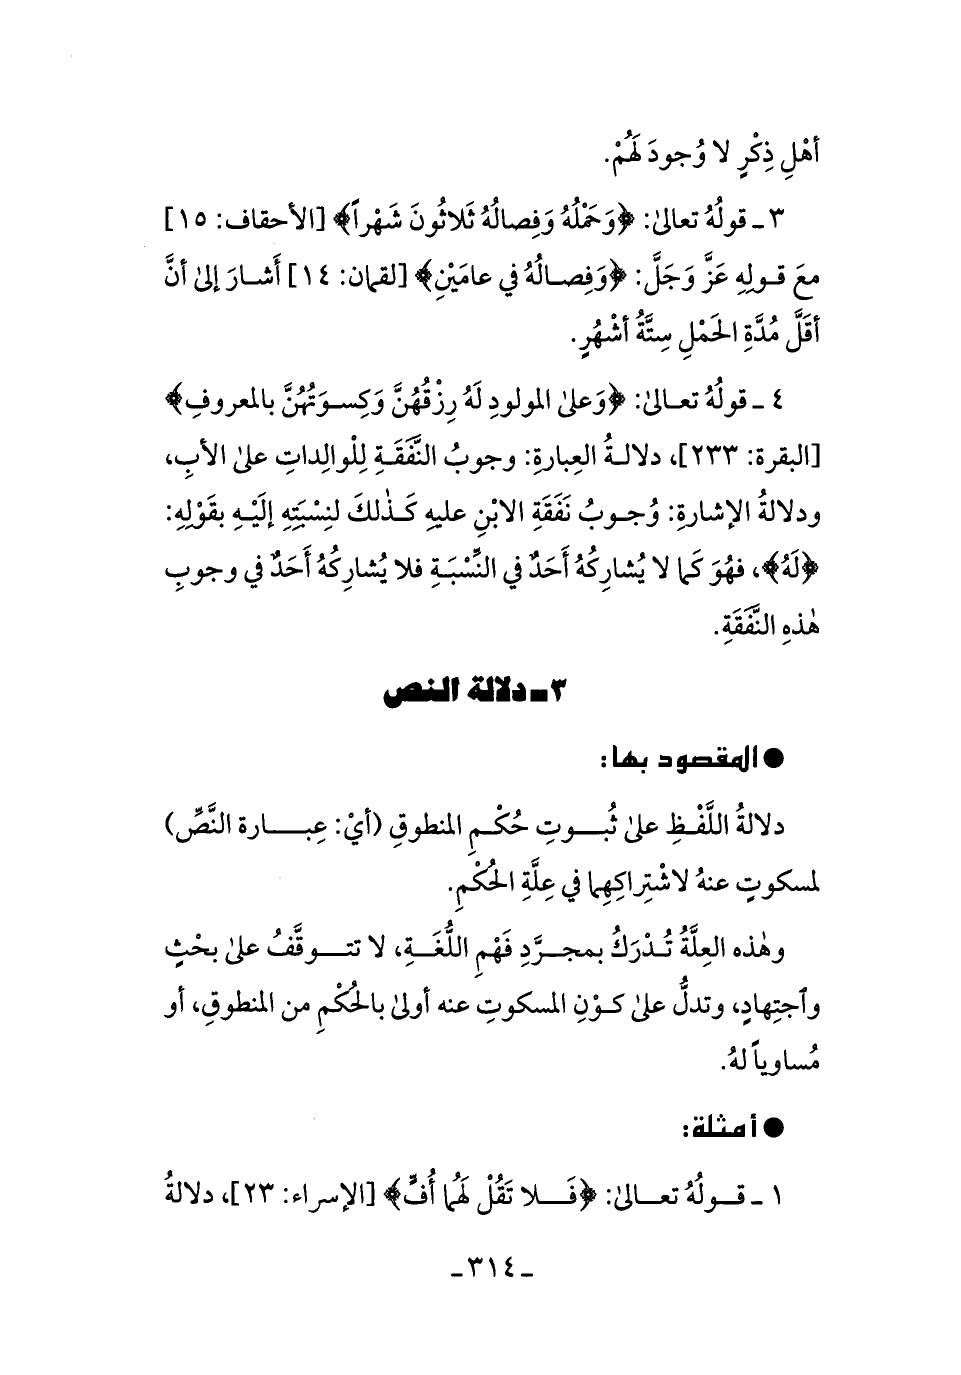 أهْلِ ذِكْرٍ لا وُجودَ لَهُمْ.
٣ ـ قولُهُ تعالىٰ: ﴿وَحَمْلُهُ وَفِصالُهُ ثَلاثُونَ شَهْراً﴾ [الأحقاف: ١٥]
معَ قـولِهِ عَزَّ وَجَلَّ: ﴿وَفِصـالُهُ في عامَيْنِ﴾ [لقمان: ١٤] أَشـارَ إلىٰ أنَّ
أقَلَّ مُدَّةِ الحَمْلِ سِتَّةُ أشْهُرٍ.
٤ ـ قولُهُ تعـالىٰ: ﴿وَعلىٰ المولودِ لَهُ رِزْقُهُنَّ وَكِسـوَتُهُنَّ بالمعروفِ﴾
[البقرة: ٢٣٣]، دلالـةُ العِبارةِ: وجوبُ النَّفَقَـةِ لِلْوالِداتِ علىٰ الأبِ،
ودلالةُ الإشارةِ: وُجـوبُ نَفَقَةِ الابْنِ عليهِ كَـذٰلكَ لنِسْبَتِهِ إلَيْـهِ بقَوْلِهِ:
﴿لَهُ﴾، فهُوَ كَما لا يُشارِكُهُ أَحَدٌ في النِّسْبَـةِ فلا يُشارِكُهُ أَحَدٌ في وجوبِ
هٰذهِ النَّفَقَةِ.
٣ ـ دلالة النص
● المقصود بها:
دلالةُ اللَّفْـظِ علىٰ ثُبـــوتِ حُكْـمِ المنطوقِ (أيْ: عِبـــارة النَّصِّ)
لمسكوتٍ عنهُ لاشْتِراكِهِما في عِلَّةِ الحُكْمِ.
وهٰذه العِلَّةُ تُـدْرَكُ بمجـرَّدِ فَهْمِ اللُّغَـــةِ، لا تتـــوقَّفُ علىٰ بحْثٍ
وٱجتِهادٍ، وتدلُّ علىٰ كـوْنِ المسكوتِ عنه أولىٰ بالحُكْمِ من المنطوقِ، أو
مُساوياً لهُ.
● أمثلة:
١ ـ قـولُهُ تعـالىٰ: ﴿فَـــلا تَقُلْ لَهُما أُفٍّ﴾ [الإسراء: ٢٣]، دلالةُ
ـ ٣١٤ ـ